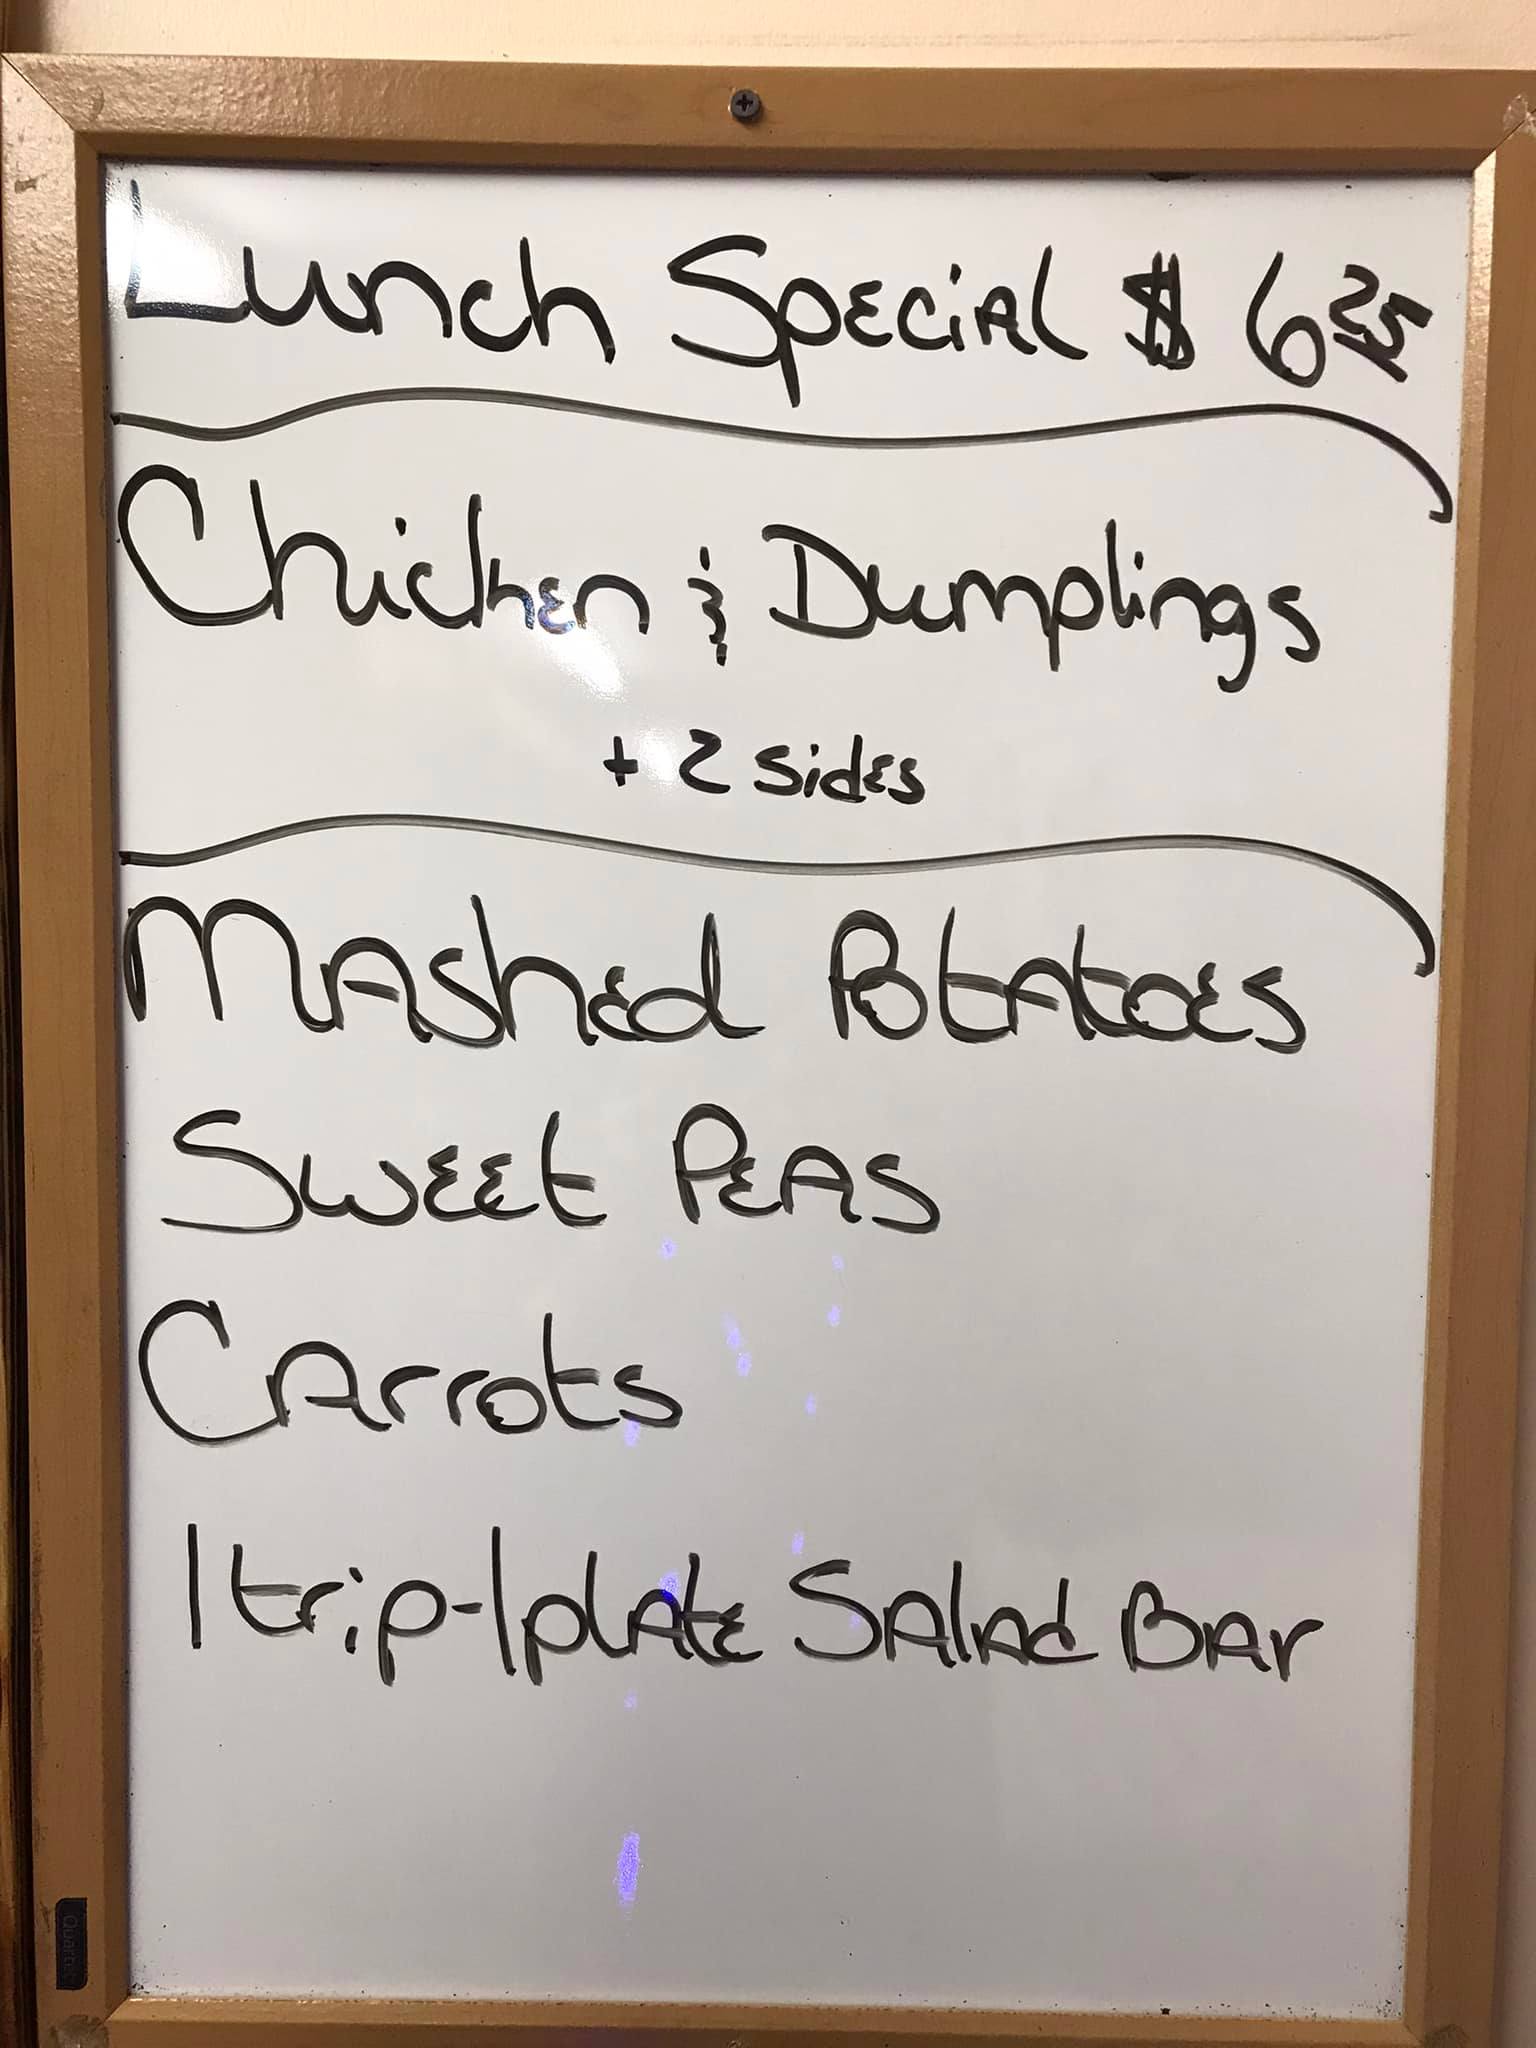 Lunch Special $ 6 25
Chicken & Dumplings
+ 2 sides
Mashed Potatoes
Sweet Peas
Carrots
1 trip-1 plate Salad Bar
Quartet